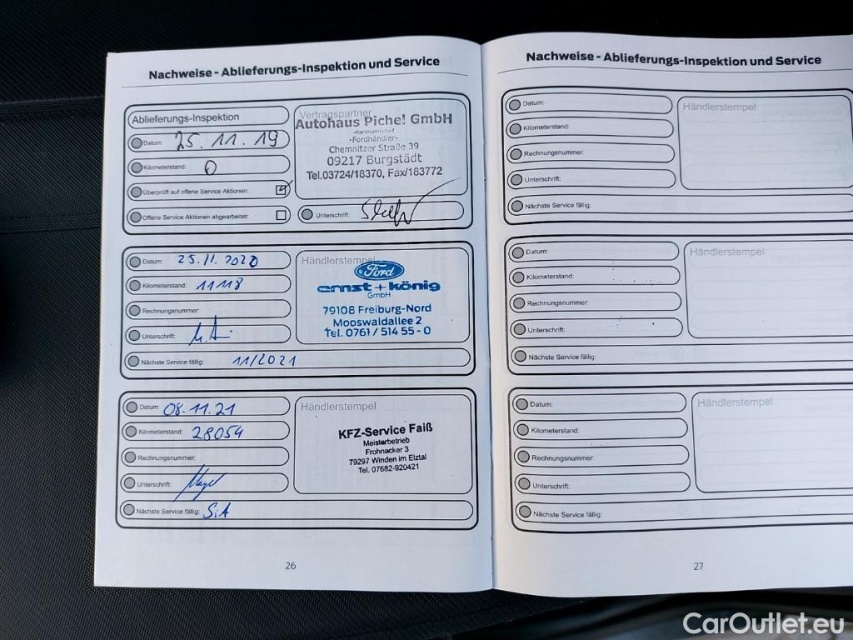 Nachweise - Ablieferungs-Inspektion und Service
Ablieferungs-Inspektion
Datum: 25.11.19
Kilometerstand: 0
Überprüft auf offene Service Aktionen:
Offene Service Aktionen abgearbeitet:
Vertragspartner
Autohaus Pichel GmbH
-Fordhändler-
Chemnitzer Straße 39
09217 Burgstädt
Tel.03724/18370, Fax/183772
Unterschrift:
Datum: 25.11.2020
Kilometerstand: 11118
Rechnungsnummer:
Unterschrift:
Nächste Service fällig: 11/2021
Händlerstempel
Ford
ernst+könig
GmbH
79108 Freiburg-Nord
Mooswaldallee 2
Tel. 0761 / 514 55 - 0
Datum: 08.11.21
Kilometerstand: 28054
Rechnungsnummer:
Unterschrift:
Nächste Service fällig: S.A
Händlerstempel
KFZ-Service Faiß
Meisterbetrieb
Frohnacker 3
79297 Winden im Elztal
Tel. 07682-920421
26
Nachweise - Ablieferungs-Inspektion und Service
Datum:
Kilometerstand:
Rechnungsnummer:
Unterschrift:
Nächste Service fällig:
Händlerstempel
Datum:
Kilometerstand:
Rechnungsnummer:
Unterschrift:
Nächste Service fällig:
Händlerstempel
Datum:
Kilometerstand:
Rechnungsnummer:
Unterschrift:
Nächste Service fällig:
Händlerstempel
27
CarOutlet.eu